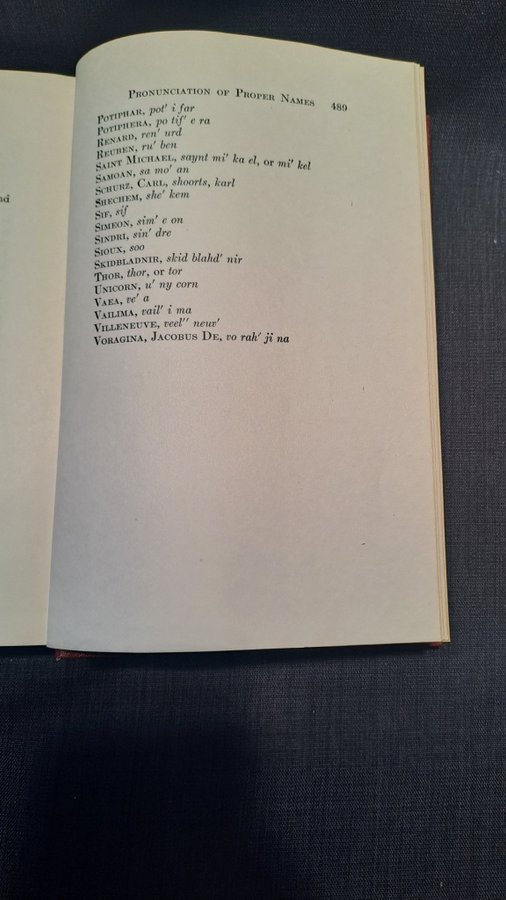 PRONUNCIATION OF PROPER NAMES 489
POTIPHAR, pot' i far
POTIPHERA, po tif' e ra
RENARD, ren' urd
REUBEN, ru' ben
SAINT MICHAEL, saynt mi' ka el, or mi' kel
SAMOAN, sa mo' an
SCHURZ, CARL, shoorts, karl
SHECHEM, she' kem
SIF, sif
SIMEON, sim' e on
SINDRI, sin' dre
SIOUX, soo
SKIDBLADNIR, skid blahd' nir
THOR, thor, or tor
UNICORN, u' ny corn
VAEA, ve' a
VAILIMA, vail' i ma
VILLENEUVE, veel'' neuv'
VORAGINA, JACOBUS DE, vo rah' ji na